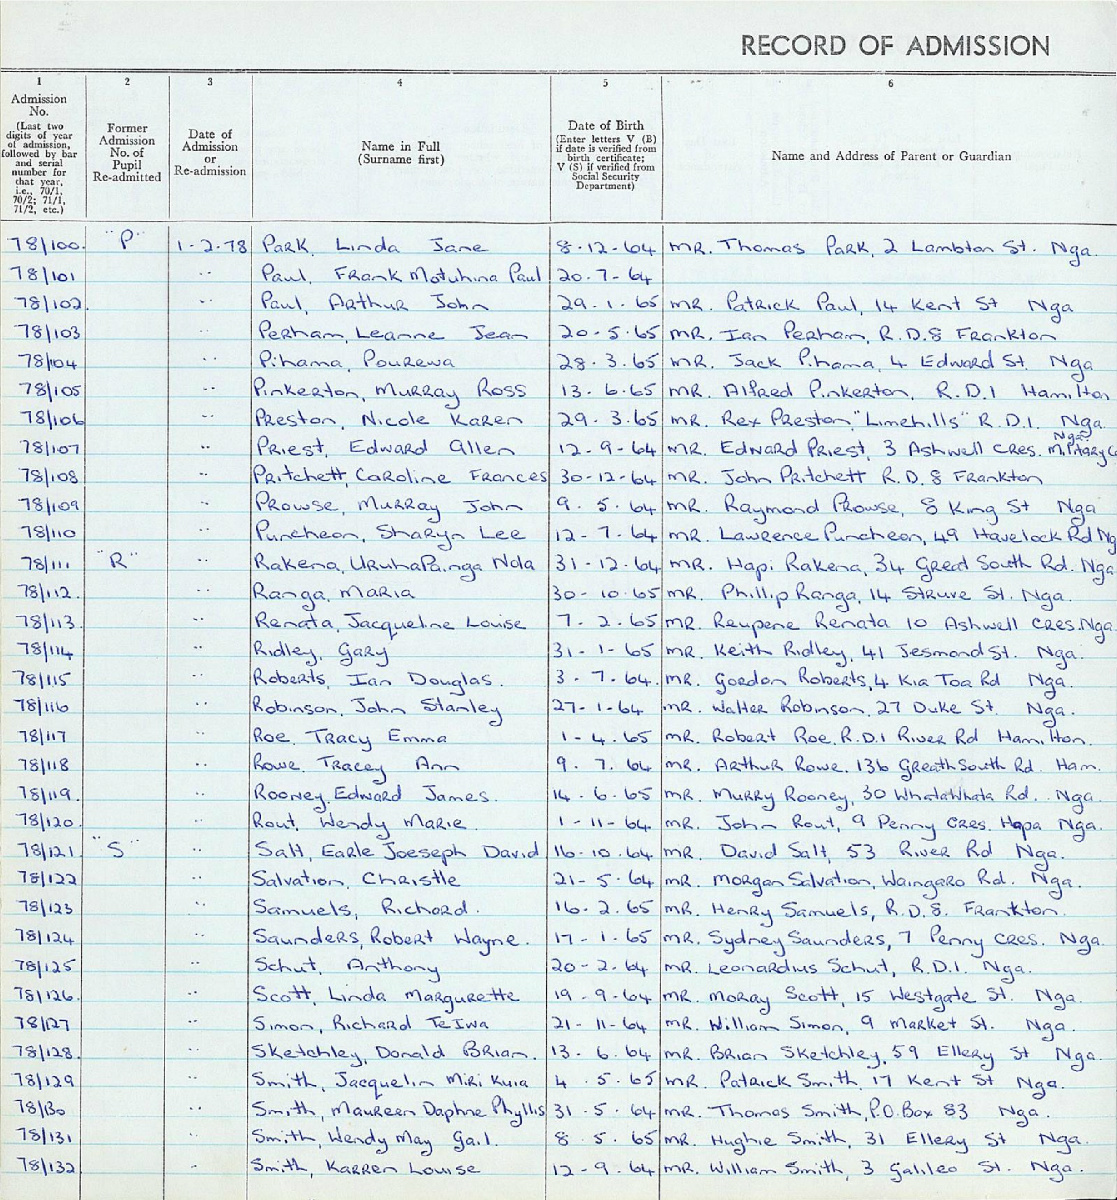 RECORD OF ADMISSION
1 2 3 4 5 6
Admission No. (Last two digits of year of admission, followed by bar and serial number for that year, i.e., 70/1, 70/2; 71/1, 71/2, etc.) Former Admission No. of Pupil Re-admitted Date of Admission or Re-admission Name in Full (Surname first) Date of Birth (Enter letters V (B) if date is verified from birth certificate; V (S) if verified from Social Security Department) Name and Address of Parent or Guardian
78/100. "P" 1-2-78 Park, Linda Jane 8-12-64 Mr. Thomas Park, 2 Lambton St. Nga.
78/101 " Paul, Frank Motuhina Paul 20-7-64
78/102. " Paul, Arthur John 29-1-65 Mr. Patrick Paul, 14 Kent St Nga
78/103 " Perham, Leanne Jean 20-5-65 Mr. Ian Perham, R.D.8 Frankton
78/104 " Pihama, Pourewa 28-3-65 Mr. Jack Pihama, 4 Edward St. Nga
78/105 " Pinkerton, Murray Ross 13-6-65 Mr. Alfred Pinkerton, R.D.1 Hamilton
78/106 " Preston, Nicole Karen 29-3-65 Mr. Rex Preston, "Limehills" R.D.1. Nga.
78/107 " Priest, Edward Allen 12-9-64 Mr. Edward Priest, 3 Ashwell Cres. Nga. Military
78/108 " Pritchett, Caroline Frances 30-12-64 Mr. John Pritchett R.D.8 Frankton
78/109 " Prowse, Murray John 9-5-64 Mr. Raymond Prowse, 8 King St Nga
78/110 " Puncheon, Sharyn Lee 12-7-64 Mr. Lawrence Puncheon, 49 Havelock Rd Ng
78/111 "R" " Rakena, Uruhapainga Nda 31-12-64 Mr. Hapi Rakena, 34 Great South Rd. Nga
78/112. " Ranga, Maria 30-10-65 Mr. Phillip Ranga, 14 Struve St. Nga.
78/113. " Renata, Jacqueline Louise 7-2-65 Mr. Reupene Renata 10 Ashwell Cres Nga.
78/114 " Ridley, Gary 31-1-65 Mr. Keith Ridley, 41 Jesmond St. Nga.
78/115 " Roberts, Ian Douglas. 3-7-64. Mr. Gordon Roberts, 4 Kia Toa Rd Nga.
78/116 " Robinson, John Stanley 27-1-64 Mr. Walter Robinson, 27 Duke St. Nga.
78/117 " Roe, Tracy Emma 1-4-65 Mr. Robert Roe, R.D.1 River Rd Hamilton.
78/118 " Rowe, Tracey Ann 9-7-64 Mr. Arthur Rowe, 136 Greath South Rd. Ham.
78/119. " Rooney, Edward James. 14-6-65 Mr. Murry Rooney, 30 Whatawhata Rd. Nga.
78/120. " Rout, Wendy Marie. 1-11-64 Mr. John Rout, 9 Penny Cres. Hopa Nga.
78/121 "S" " Salt, Earle Joeseph David 16-10-64 Mr. David Salt, 53 River Rd Nga.
78/122 " Salvation, Christle 21-5-64 Mr. Morgan Salvation, Waingaro Rd. Nga.
78/123 " Samuels, Richard. 16-2-65 Mr. Henry Samuels, R.D.8. Frankton.
78/124 " Saunders, Robert Wayne. 17-1-65 Mr. Sydney Saunders, 7 Penny Cres. Nga.
78/125 " Schut, Anthony 20-2-64 Mr. Leonardius Schut, R.D.1. Nga.
78/126. " Scott, Linda Margurette 19-9-64 Mr. Moray Scott, 15 Westgate St. Nga.
78/127 " Simon, Richard Te Iwa 21-11-64 Mr. William Simon, 9 Market St. Nga.
78/128. " Sketchley, Donald Brian. 13-6-64 Mr. Brian Sketchley, 59 Ellery St Nga.
78/129 " Smith, Jacquelin Miri Kuia 4-5-65 Mr. Patrick Smith, 17 Kent St Nga.
78/130 " Smith, Maureen Daphne Phyllis 31-5-64 Mr. Thomas Smith, P.O. Box 83 Nga.
78/131 " Smith, Wendy May Gail. 8-5-65 Mr. Hughie Smith, 31 Ellery St Nga.
78/132. " Smith, Karren Louise 12-9-64 Mr. William Smith, 3 Galileo St. Nga.